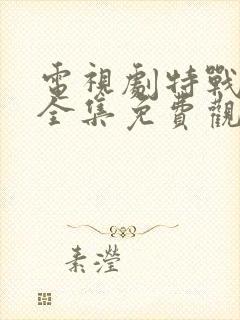 電視劇特戰
全集免費觀
素瀅